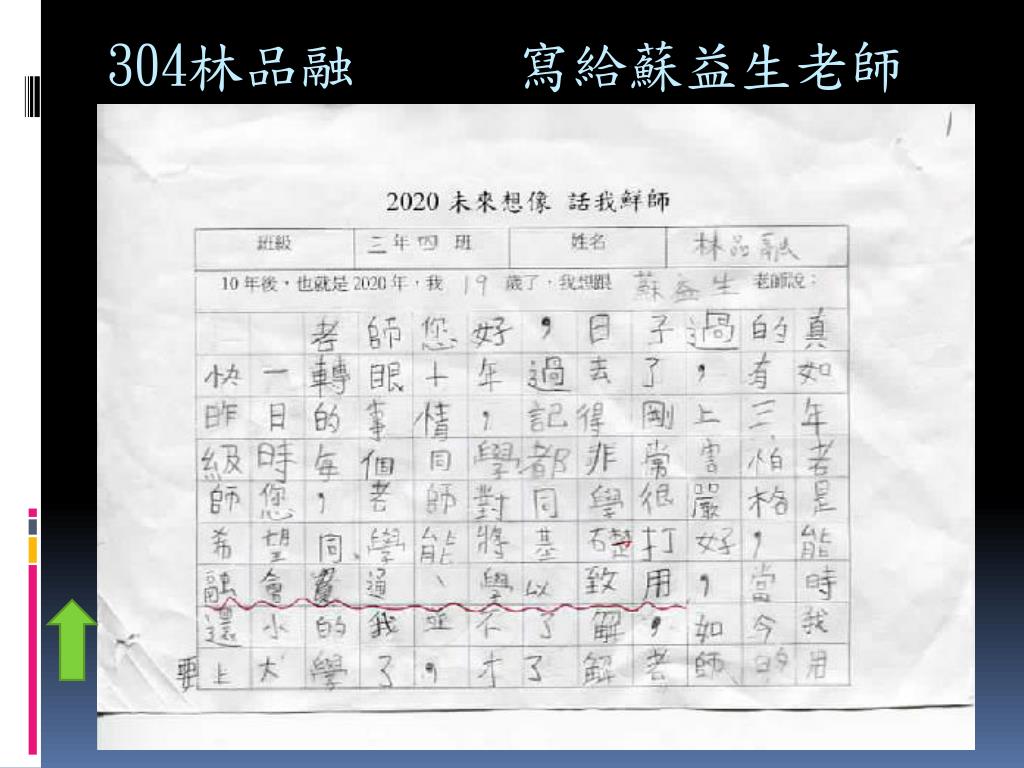 304林品融 寫給蘇益生老師
1
2020 未來想像 話我鮮師
班級 三年四班 姓名 林品融
10 年後,也就是 2020 年,我 19 歲了,我想跟 蘇益生 老師說:
老師您好,日子過的真
快一轉眼十年過去了,有如
昨日的事情,記得剛上三年
級時每個同學都非常害怕老
師您,老師對同學很嚴格是
希望同學能將基礎打好,能
融會貫通、學以致用,當時
還小的我並不了解,如今我
要上大學了,才了解老師的用